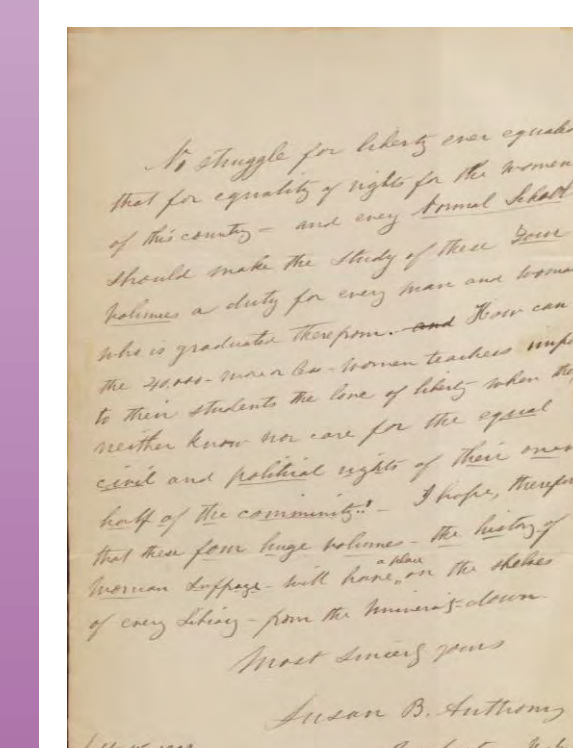 No struggle for liberty ever equale
that for equality of rights for the women
of this country - and every Normal School
should make the study of these Four
Volumes a duty for every man and woma
who is graduated therefrom. - and How can
the women teachers impa
to their students the love of liberty when the
neither know nor care for the equal
civil and political rights of their own
half of the community!! - I hope, therefor
that these four huge volumes - the history of
Woman Suffrage - will have a place on the shelves
of every Library - from the University - down.
Most sincerely yours
Susan B. Anthony